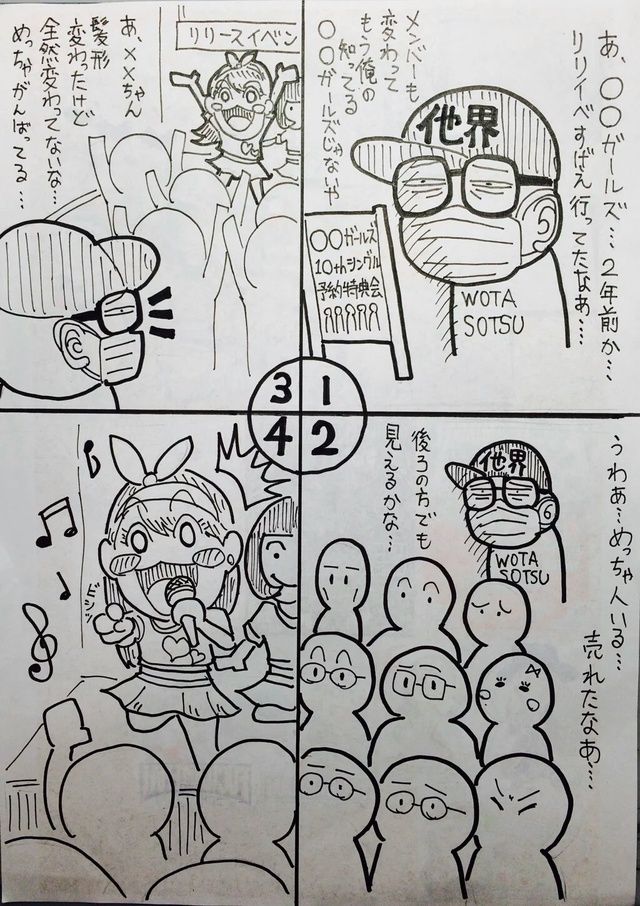 あ、〇〇ガールズ…２年前か…
リリイベすげえ行ってたなあ…
メンバーも
変わって
もう俺の
知ってる
〇〇ガールズじゃないや
他界
WOTA
SOTSU
〇〇ガールズ
10thシングル
予約特典会
1
うわあ…めっちゃ人いる…
売れたなあ…
後ろの方でも
見えるかな…
他界
WOTA
SOTSU
2
リリースイベン
あ、××ちゃん
髪形
変わったけど
全然変わってないな…
めっちゃがんばってる…
3
ビシッ
4